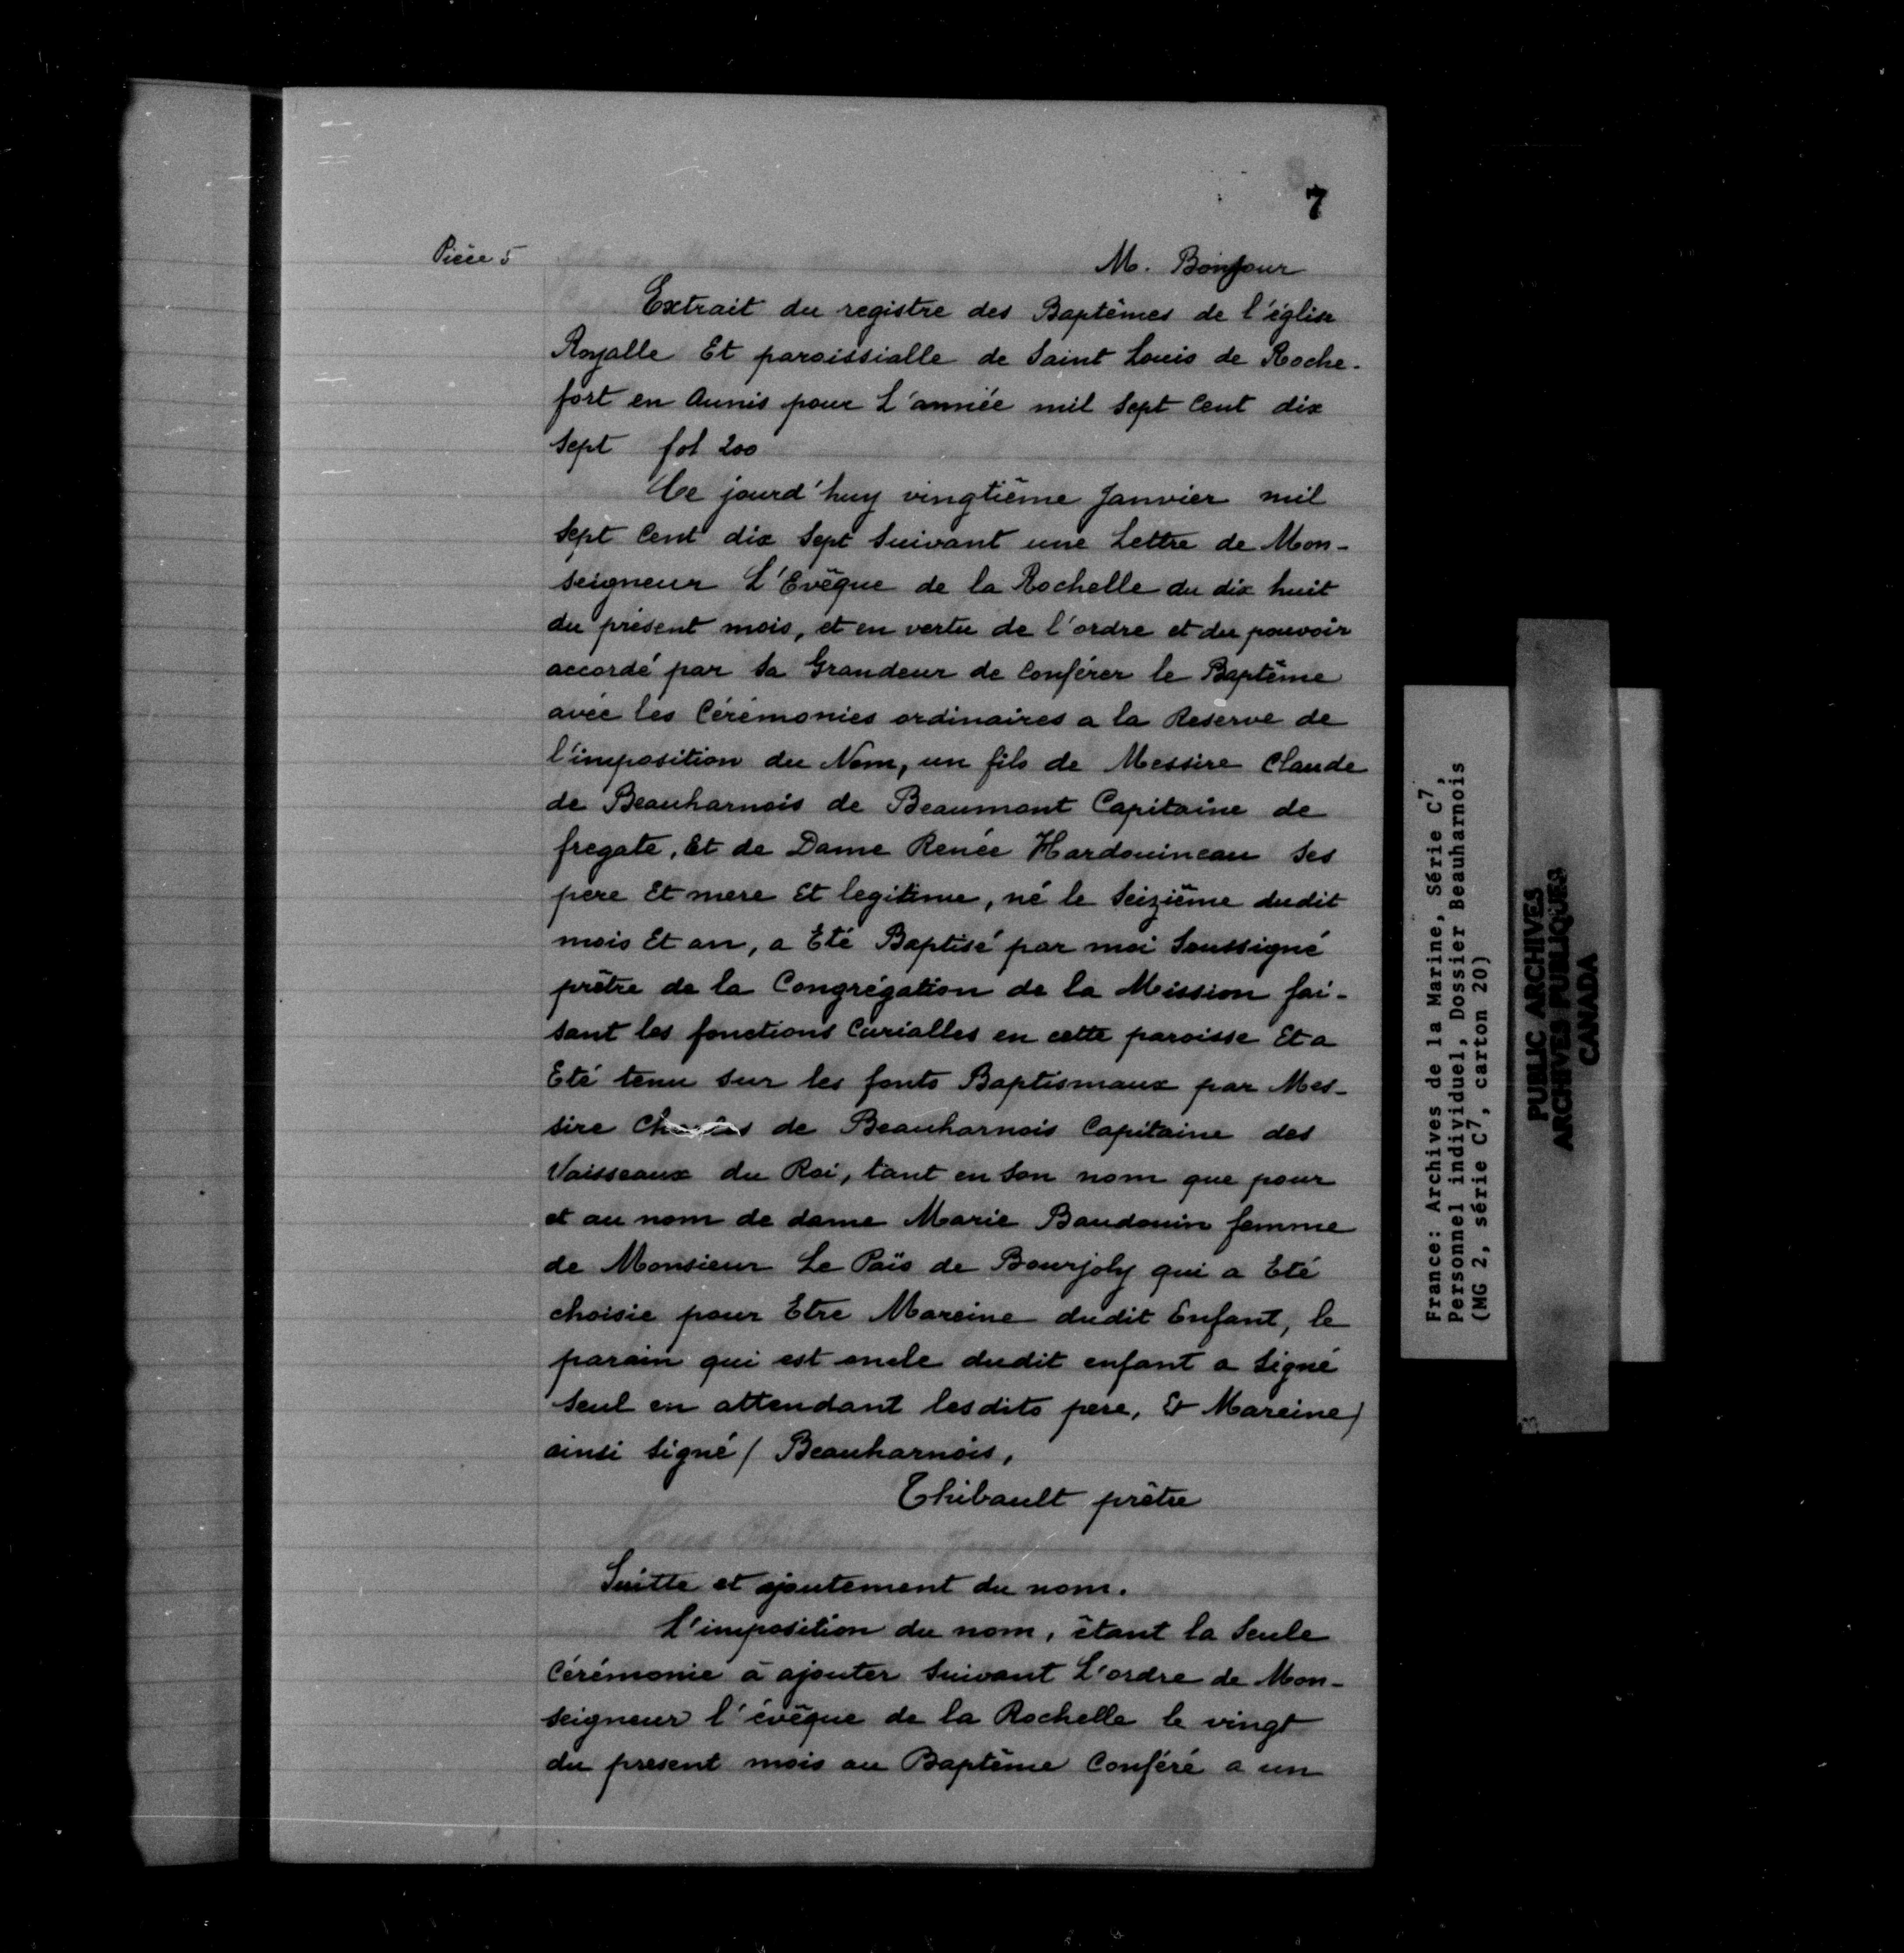 7
Pièce 5
M. Bonjour
Extrait du registre des Baptêmes de l'église
Royalle Et paroissialle de Saint Louis de Roche-
fort en Aunis pour L'année mil Sept Cent dix
Sept fol 200
Ce jourd'huy vingtième Janvier mil
Sept Cent dix Sept Suivant une Lettre de Mon-
seigneur L'Evêque de la Rochelle du dix huit
du présent mois, et en vertu de l'ordre et du pouvoir
accordé par Sa Grandeur de Conférer le Baptême
avec les Cérémonies ordinaires a la Reserve de
l'imposition du Nom, un fils de Messire Claude
de Beauharnois de Beaumont Capitaine de
fregate, Et de Dame Renée Hardouineau Ses
père Et mere Et legitime, né le Seizième dudit
mois Et an, a Eté Baptisé par moi Soussigné
prêtre de la Congrégation de la Mission fai-
sant les fonctions Curialles en cette paroisse Et a
Eté tenu Sur les fonts Baptismaux par Mes-
sire Charles de Beauharnois Capitaine des
Vaisseaux du Roi, tant en Son nom que pour
et au nom de dame Marie Baudouin femme
de Monsieur Le Païs de Bourjoly qui a Eté
choisie pour Etre Mareine dudit Enfant, le
parain qui est oncle dudit enfant a Signé
Seul en attendant lesdits pere, & Mareine /
ainsi Signé / Beauharnois,
Thibault prêtre
Suitte et ajoutement du nom.
L'imposition du nom, étant la Seule
Cérémonie à ajouter Suivant L'ordre de Mon-
seigneur l'évêque de la Rochelle le vingt
du present mois au Baptême Conféré a un
France: Archives de la Marine, Série C7,
Personnel individuel, Dossier Beauharnois
(MG 2, série C7, carton 20)
PUBLIC ARCHIVES
ARCHIVES PUBLIQUES
CANADA